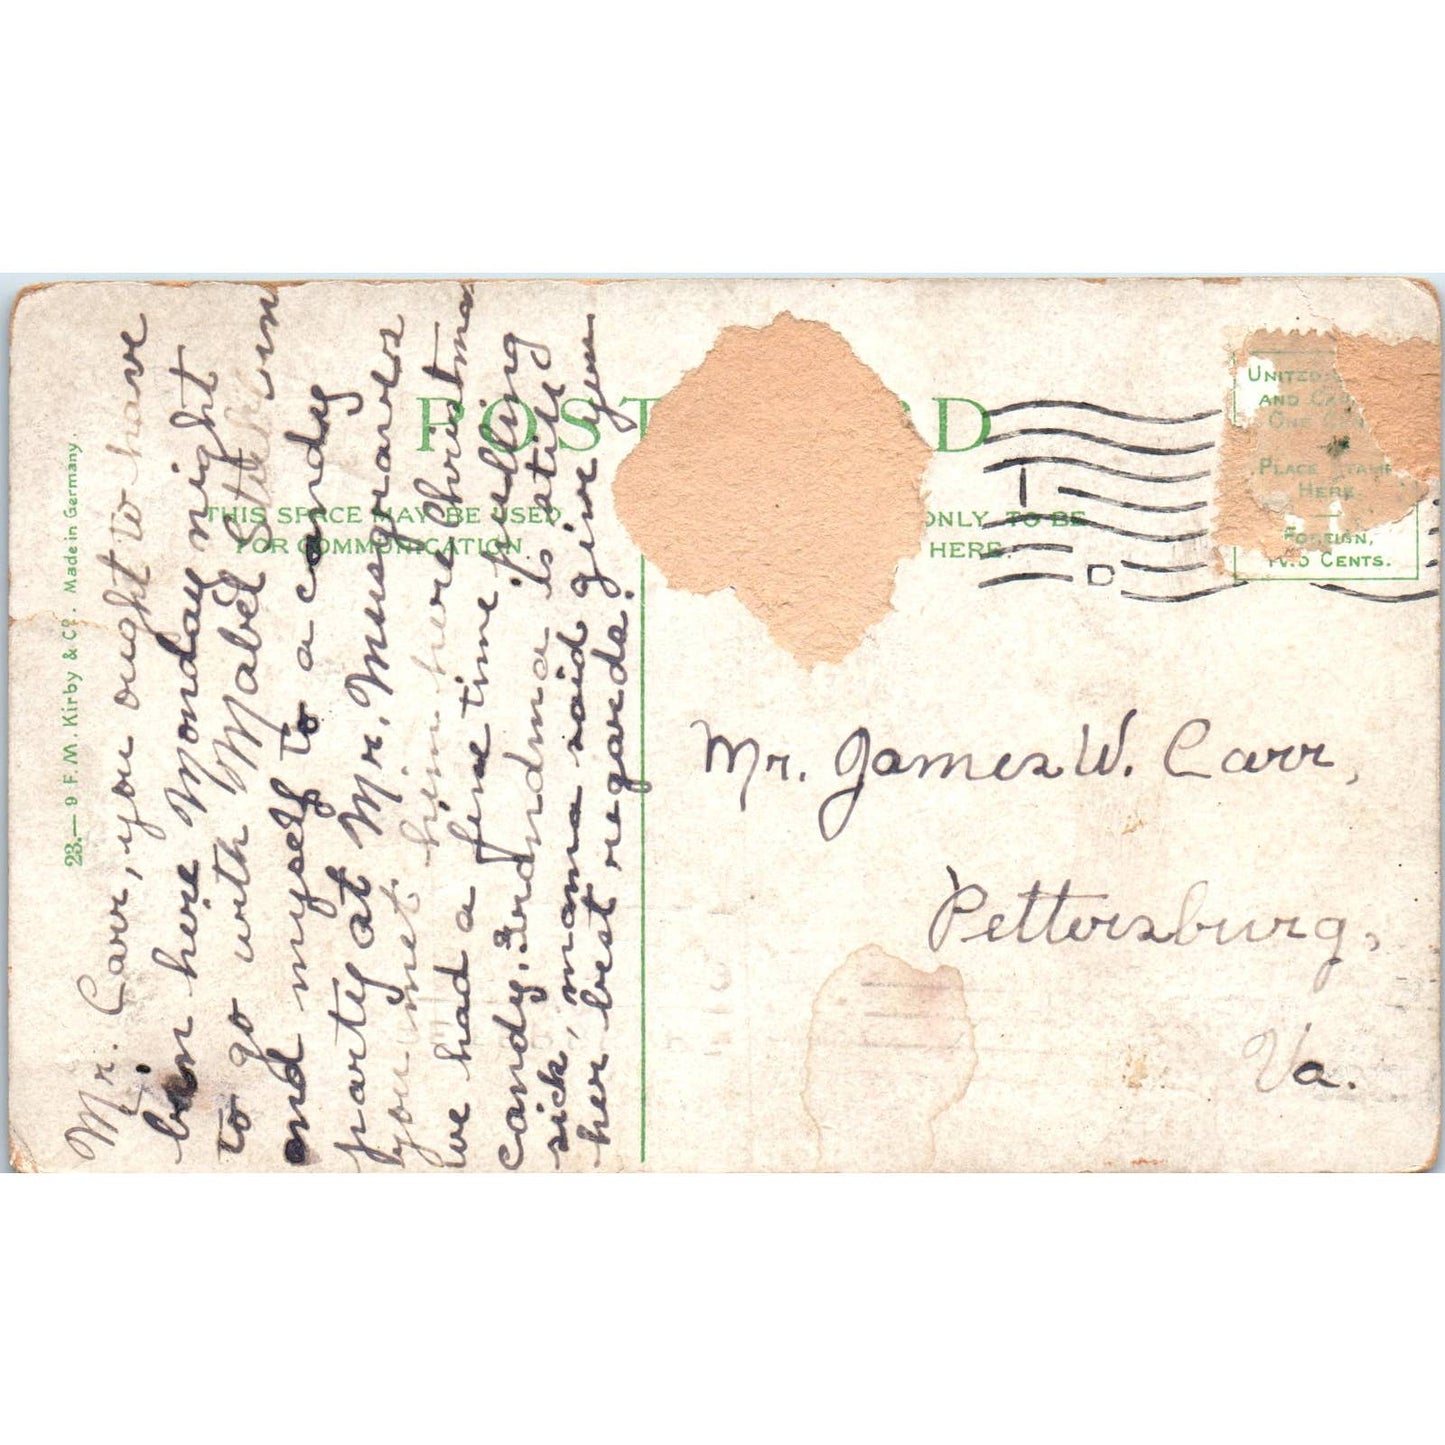 POST RD
THIS SPACE MAY BE USED
FOR COMMUNICATION
ONLY TO BE
HERE
UNITED
AND
ONE
PLACE STAMP
HERE
FOREIGN,
CENTS.
23.— 9 F. M. Kirby & Co. Made in Germany.
Mr. Carr, you ought to have
ben here Monday night
to go with Mabel in
and myself to a candy
party at Mr. Musgraves
you met him here Christmas
we had a fine time pulling
candy. Grandma is still
sick, mama said give you
her best regards.
Mr. James W. Carr,
Pettersburg,
Va.